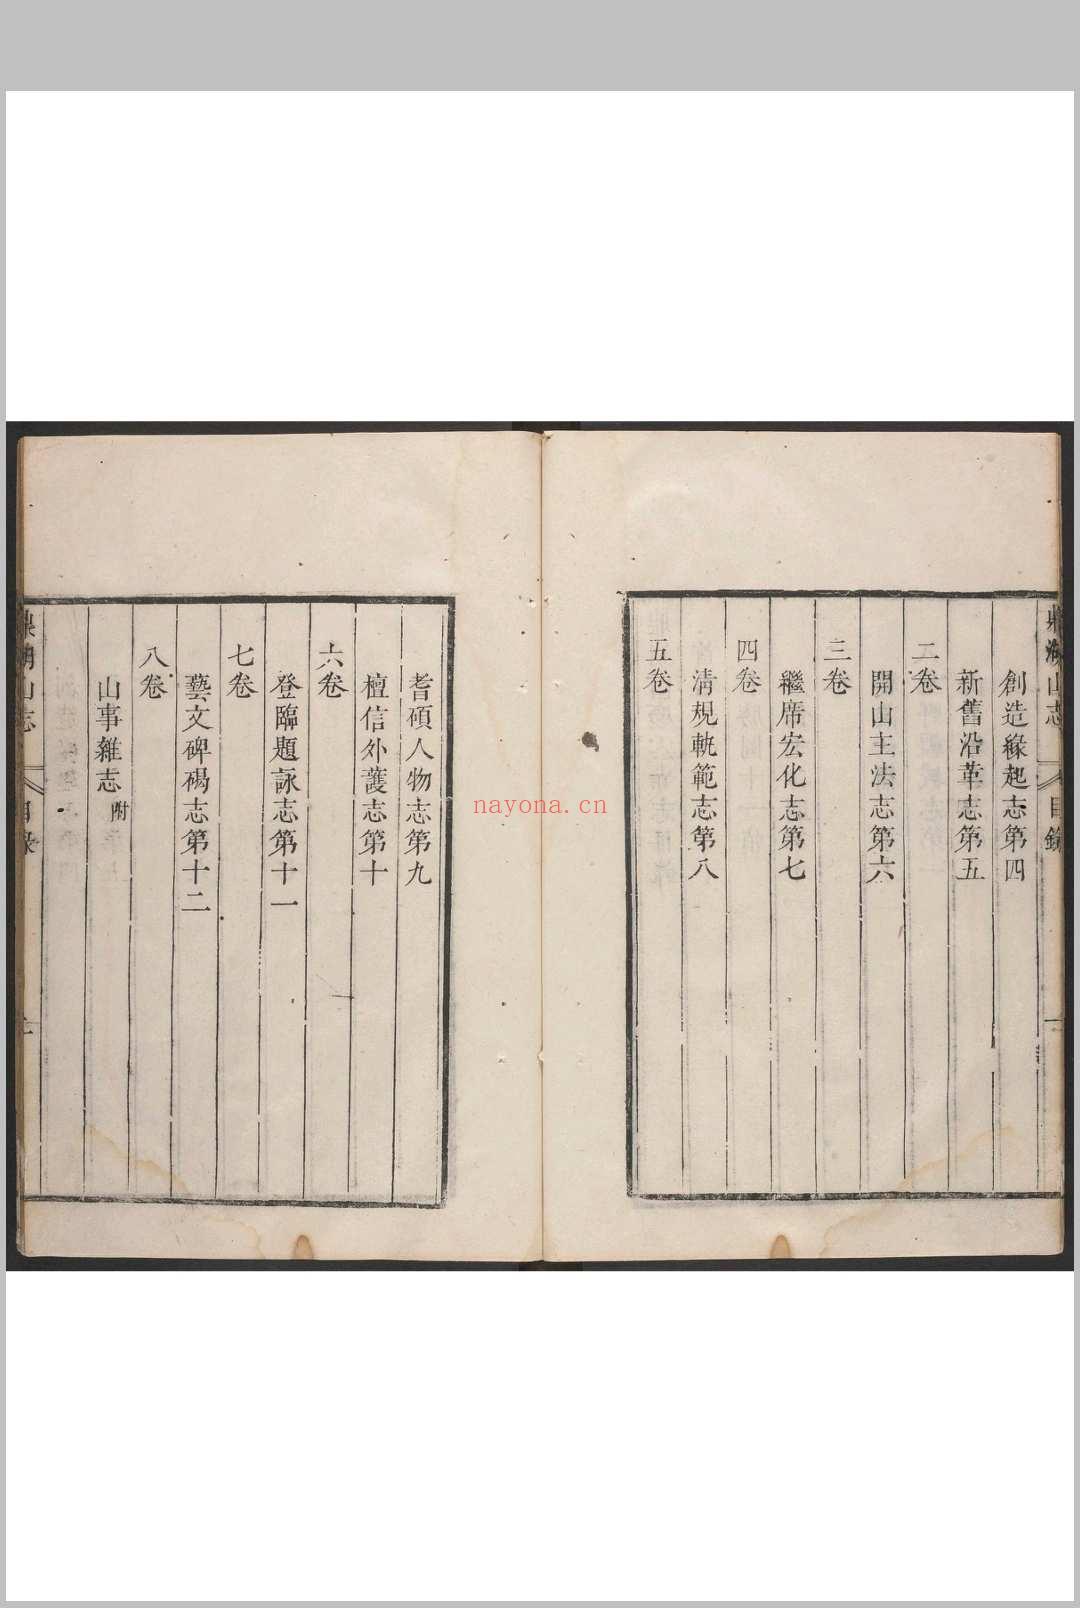 鼎湖山志 目錄 一
創造緣起志第四
新舊沿革志第五
二卷
開山主法志第六
三卷
繼席宏化志第七
四卷
清規軌範志第八
五卷
耆碩人物志第九
檀信外護志第十
六卷
登臨題詠志第十一
七卷
藝文碑碣志第十二
八卷
山事雜志附
鼎湖山志 目錄
nayona.cn